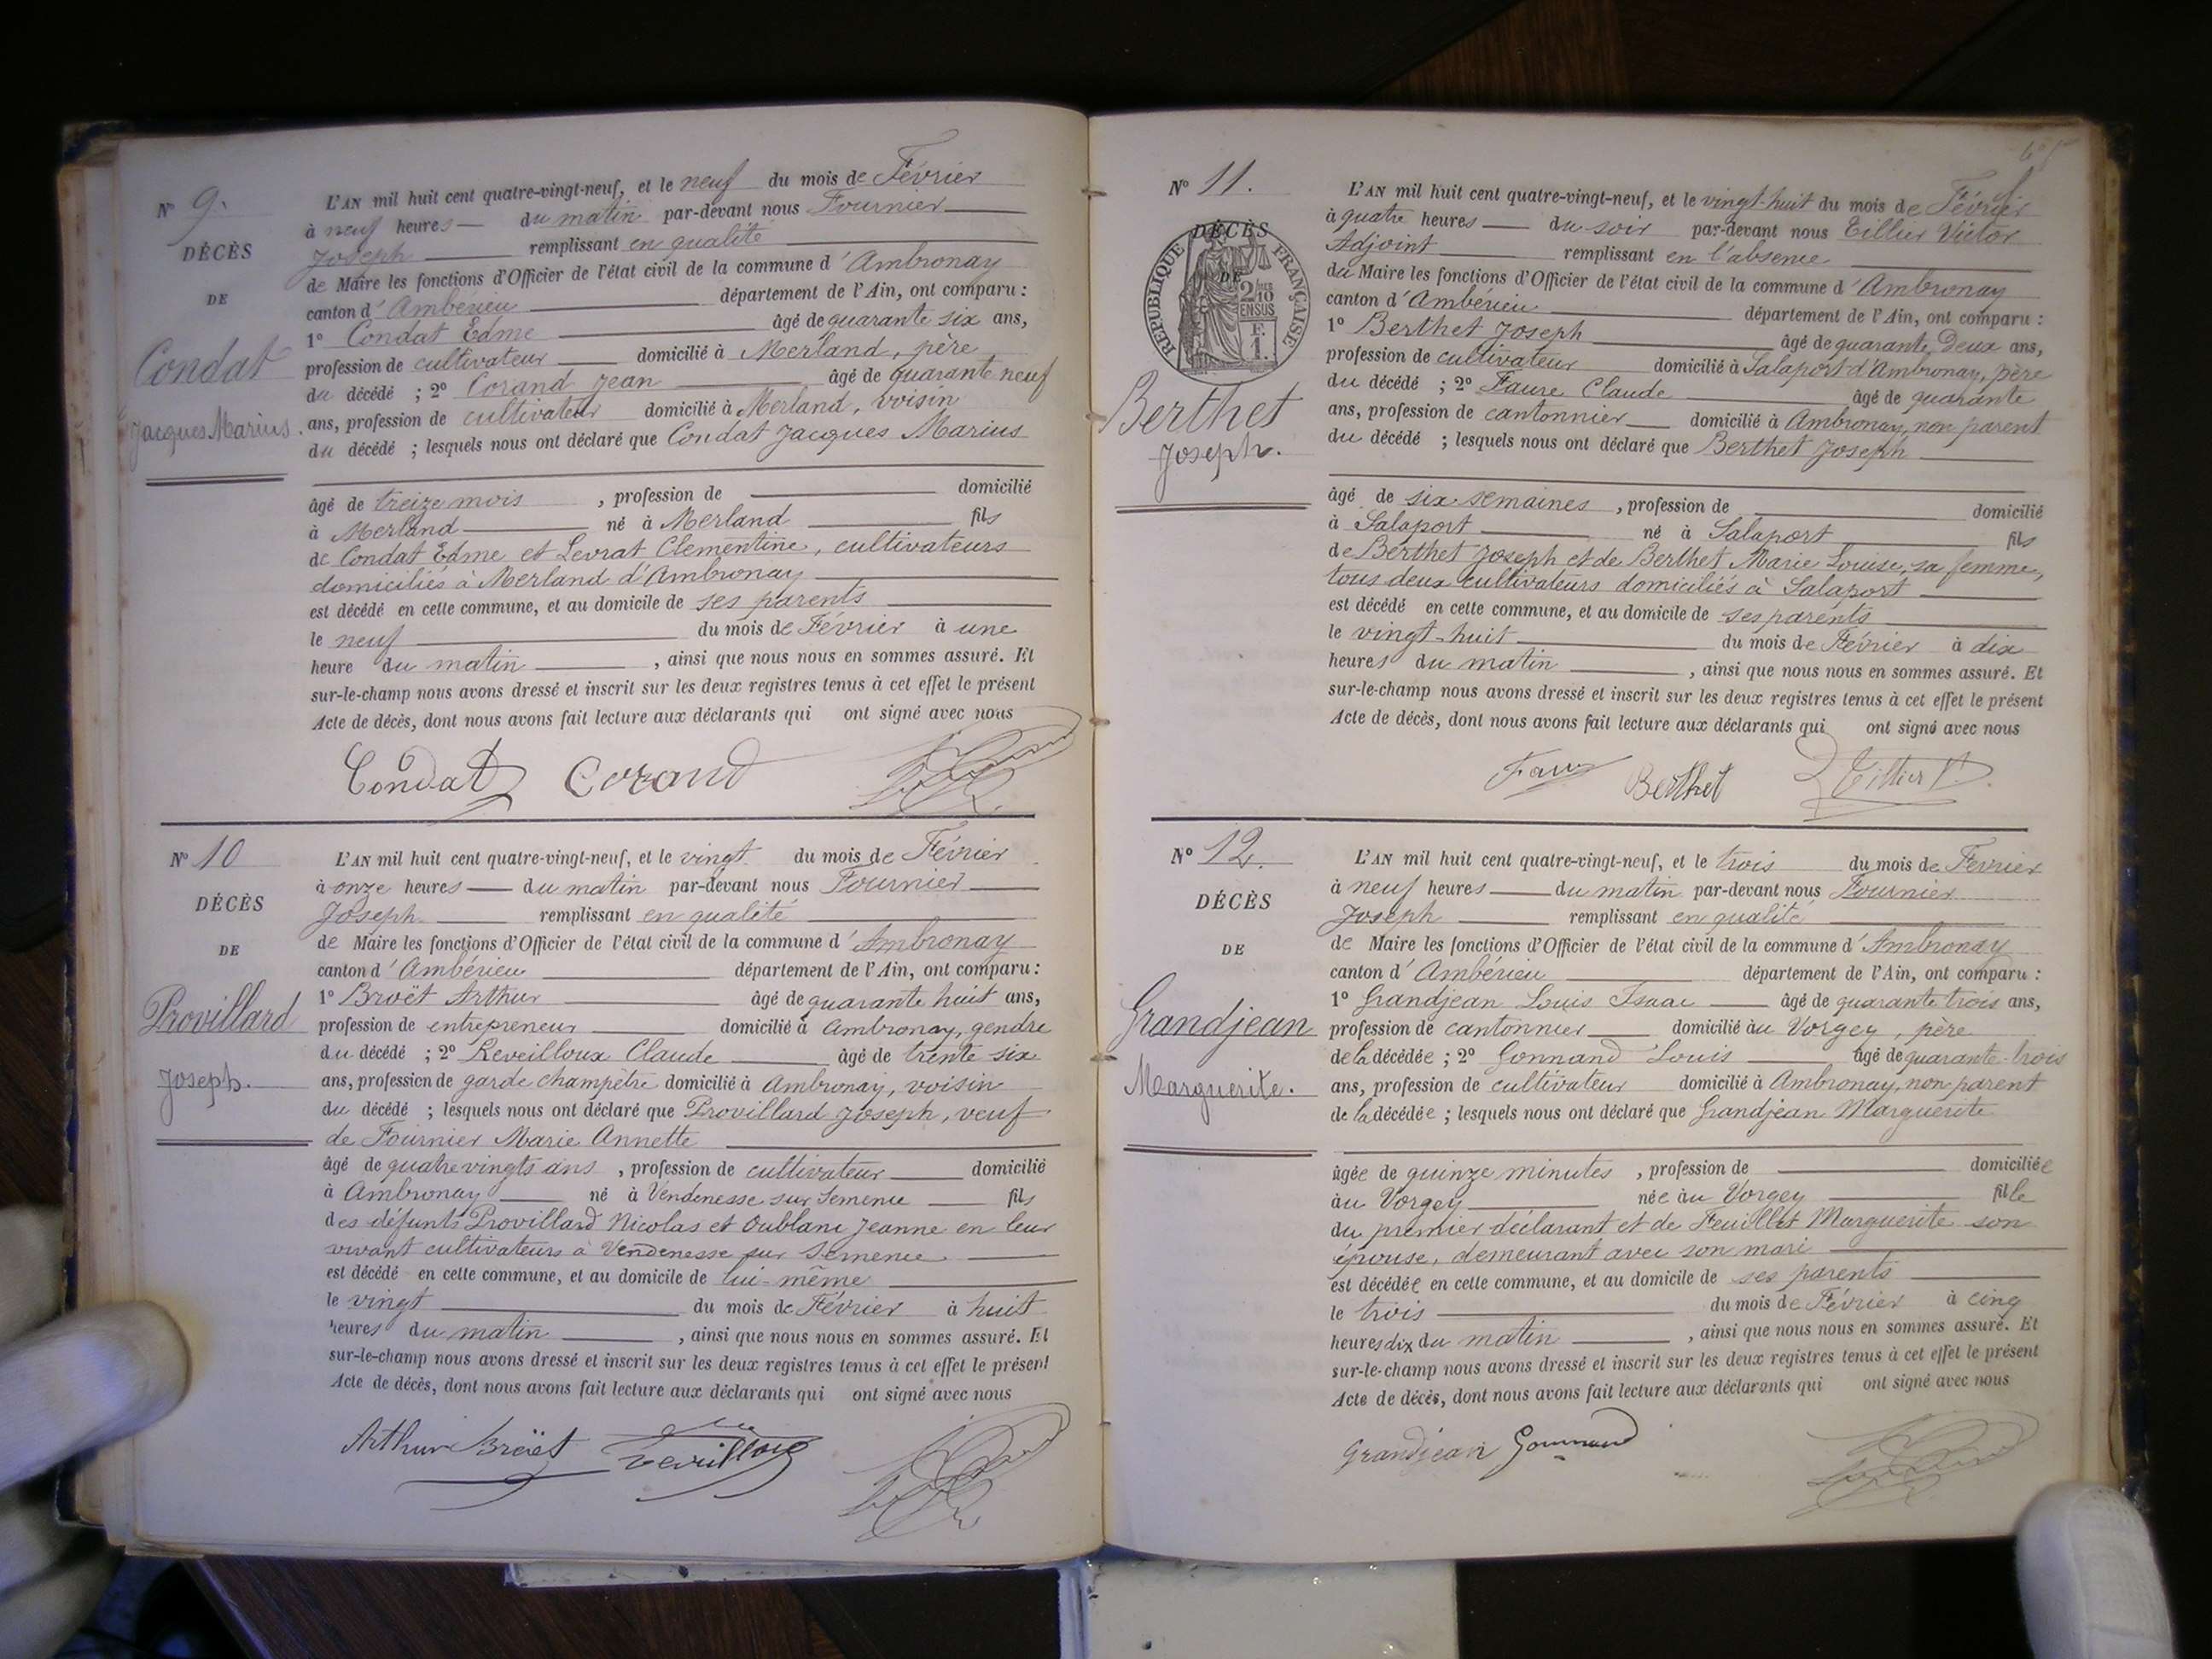 Nº 9.
DÉCÈS
DE
Condat
Jacques Marius.
L'AN mil huit cent quatre-vingt-neuf, et le neuf du mois de Février
à neuf heures du matin par-devant nous Fournier
Joseph remplissant en qualité
de Maire les fonctions d'Officier de l'état civil de la commune d'Ambronay
canton d'Ambérieu département de l'Ain, ont comparu :
1º Condat Edme âgé de quarante six ans,
profession de cultivateur domicilié à Merland, père
du décédé ; 2º Corand Jean âgé de quarante neuf
ans, profession de cultivateur domicilié à Merland, voisin
du décédé ; lesquels nous ont déclaré que Condat Jacques Marius
âgé de treize mois , profession de domicilié
à Merland né à Merland fils
de Condat Edme et Levrat Clementine, cultivateurs
domiciliés à Merland d'Ambronay
est décédé en cette commune, et au domicile de ses parents
le neuf du mois de Février à une
heure du matin , ainsi que nous nous en sommes assuré. Et
sur-le-champ nous avons dressé et inscrit sur les deux registres tenus à cet effet le présent
Acte de décès, dont nous avons fait lecture aux déclarants qui ont signé avec nous
Condat Corand
Nº 10
DÉCÈS
DE
Provillard
Joseph.
L'AN mil huit cent quatre-vingt-neuf, et le vingt du mois de Février
à onze heures du matin par-devant nous Fournier
Joseph remplissant en qualité
de Maire les fonctions d'Officier de l'état civil de la commune d'Ambronay
canton d'Ambérieu département de l'Ain, ont comparu :
1º Broët Arthur âgé de quarante huit ans,
profession de entrepreneur domicilié à Ambronay, gendre
du décédé ; 2º Reveilloux Claude âgé de trente six
ans, profession de garde champêtre domicilié à Ambronay, voisin
du décédé ; lesquels nous ont déclaré que Provillard Joseph, veuf
de Fournier Marie Annette
âgé de quatre vingts ans , profession de cultivateur domicilié
à Ambronay né à Vendenesse sur Semence fils
des défunts Provillard Nicolas et Oublanc Jeanne en leur
vivant cultivateurs à Vendenesse sur Semence
est décédé en cette commune, et au domicile de lui-même
le vingt du mois de Février à huit
heures du matin , ainsi que nous nous en sommes assuré. Et
sur-le-champ nous avons dressé et inscrit sur les deux registres tenus à cet effet le présent
Acte de décès, dont nous avons fait lecture aux déclarants qui ont signé avec nous
Arthur Broët
Nº 11.
DÉCÈS
DE
RÉPUBLIQUE FRANÇAISE
2/10 EN SUS
F.
1.
Berthet
Joseph.
L'AN mil huit cent quatre-vingt-neuf, et le vingt-huit du mois de Février
à quatre heures du soir par-devant nous Tillier Victor
Adjoint remplissant en l'absence
du Maire les fonctions d'Officier de l'état civil de la commune d'Ambronay
canton d'Ambérieu département de l'Ain, ont comparu :
1º Berthet Joseph âgé de quarante Deux ans,
profession de cultivateur domicilié à Salaport d'Ambronay, père
du décédé ; 2º Faure Claude âgé de quarante
ans, profession de cantonnier domicilié à Ambronay, non parent
du décédé ; lesquels nous ont déclaré que Berthet Joseph
âgé de six semaines , profession de domicilié
à Salaport né à Salaport fils
de Berthet Joseph et de Berthet Marie Louise, sa femme,
tous deux cultivateurs domiciliés à Salaport
est décédé en cette commune, et au domicile de ses parents
le vingt-huit du mois de Février à dix
heures du matin , ainsi que nous nous en sommes assuré. Et
sur-le-champ nous avons dressé et inscrit sur les deux registres tenus à cet effet le présent
Acte de décès, dont nous avons fait lecture aux déclarants qui ont signé avec nous
Faure Berthet Tillier V.
Nº 12.
DÉCÈS
DE
Grandjean
Marguerite.
L'AN mil huit cent quatre-vingt-neuf, et le trois du mois de Fevrier
à neuf heures du matin par-devant nous Fournier
Joseph remplissant en qualité
de Maire les fonctions d'Officier de l'état civil de la commune d'Ambronay
canton d'Ambérieu département de l'Ain, ont comparu :
1º Grandjean Louis Isaac âgé de quarante trois ans,
profession de cantonnier domicilié àu Vorgey, père
de la décédée ; 2º Gonnand Louis âgé de quarante-trois
ans, profession de cultivateur domicilié à Ambronay, non parent
de la décédée ; lesquels nous ont déclaré que Grandjean Marguerite
âgée de quinze minutes , profession de domiciliée
àu Vorgey née àu Vorgey fille
du premier déclarant et de Feuillet Marguerite son
épouse, demeurant avec son mari
est décédée en cette commune, et au domicile de ses parents
le trois du mois de Février à cinq
heures dix du matin , ainsi que nous nous en sommes assuré. Et
sur-le-champ nous avons dressé et inscrit sur les deux registres tenus à cet effet le présent
Acte de décès, dont nous avons fait lecture aux déclarants qui ont signé avec nous
Grandjean Gonnand